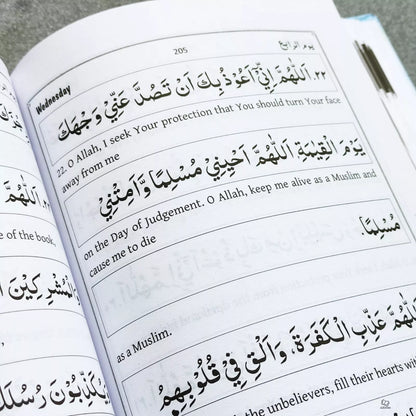 Wednesday
205
يوم الرابع
٢٢. اَللّٰهُمَّ اِنِّيْ اَعُوْذُ بِكَ اَنْ تَصُدَّ عَنِّيْ وَجْهَكَ
22. O Allah, I seek Your protection that You should turn Your face
away from me
يَوْمَ الْقِيٰمَةِ اَللّٰهُمَّ اَحْيِنِيْ مُسْلِمًا وَّاَمِتْنِيْ
on the Day of Judgement. O Allah, keep me alive as a Muslim and
cause me to die
مُسْلِمًا.
as a Muslim.
اَللّٰهُمَّ عَذِّبِ الْكَفَرَةَ، وَاَلْقِ فِيْ قُلُوْبِهِمُ
the unbelievers, fill their hearts with
of the book.
الْمُشْرِكِيْنَ
يُكَذِّبُوْنَ رُسُلَكَ